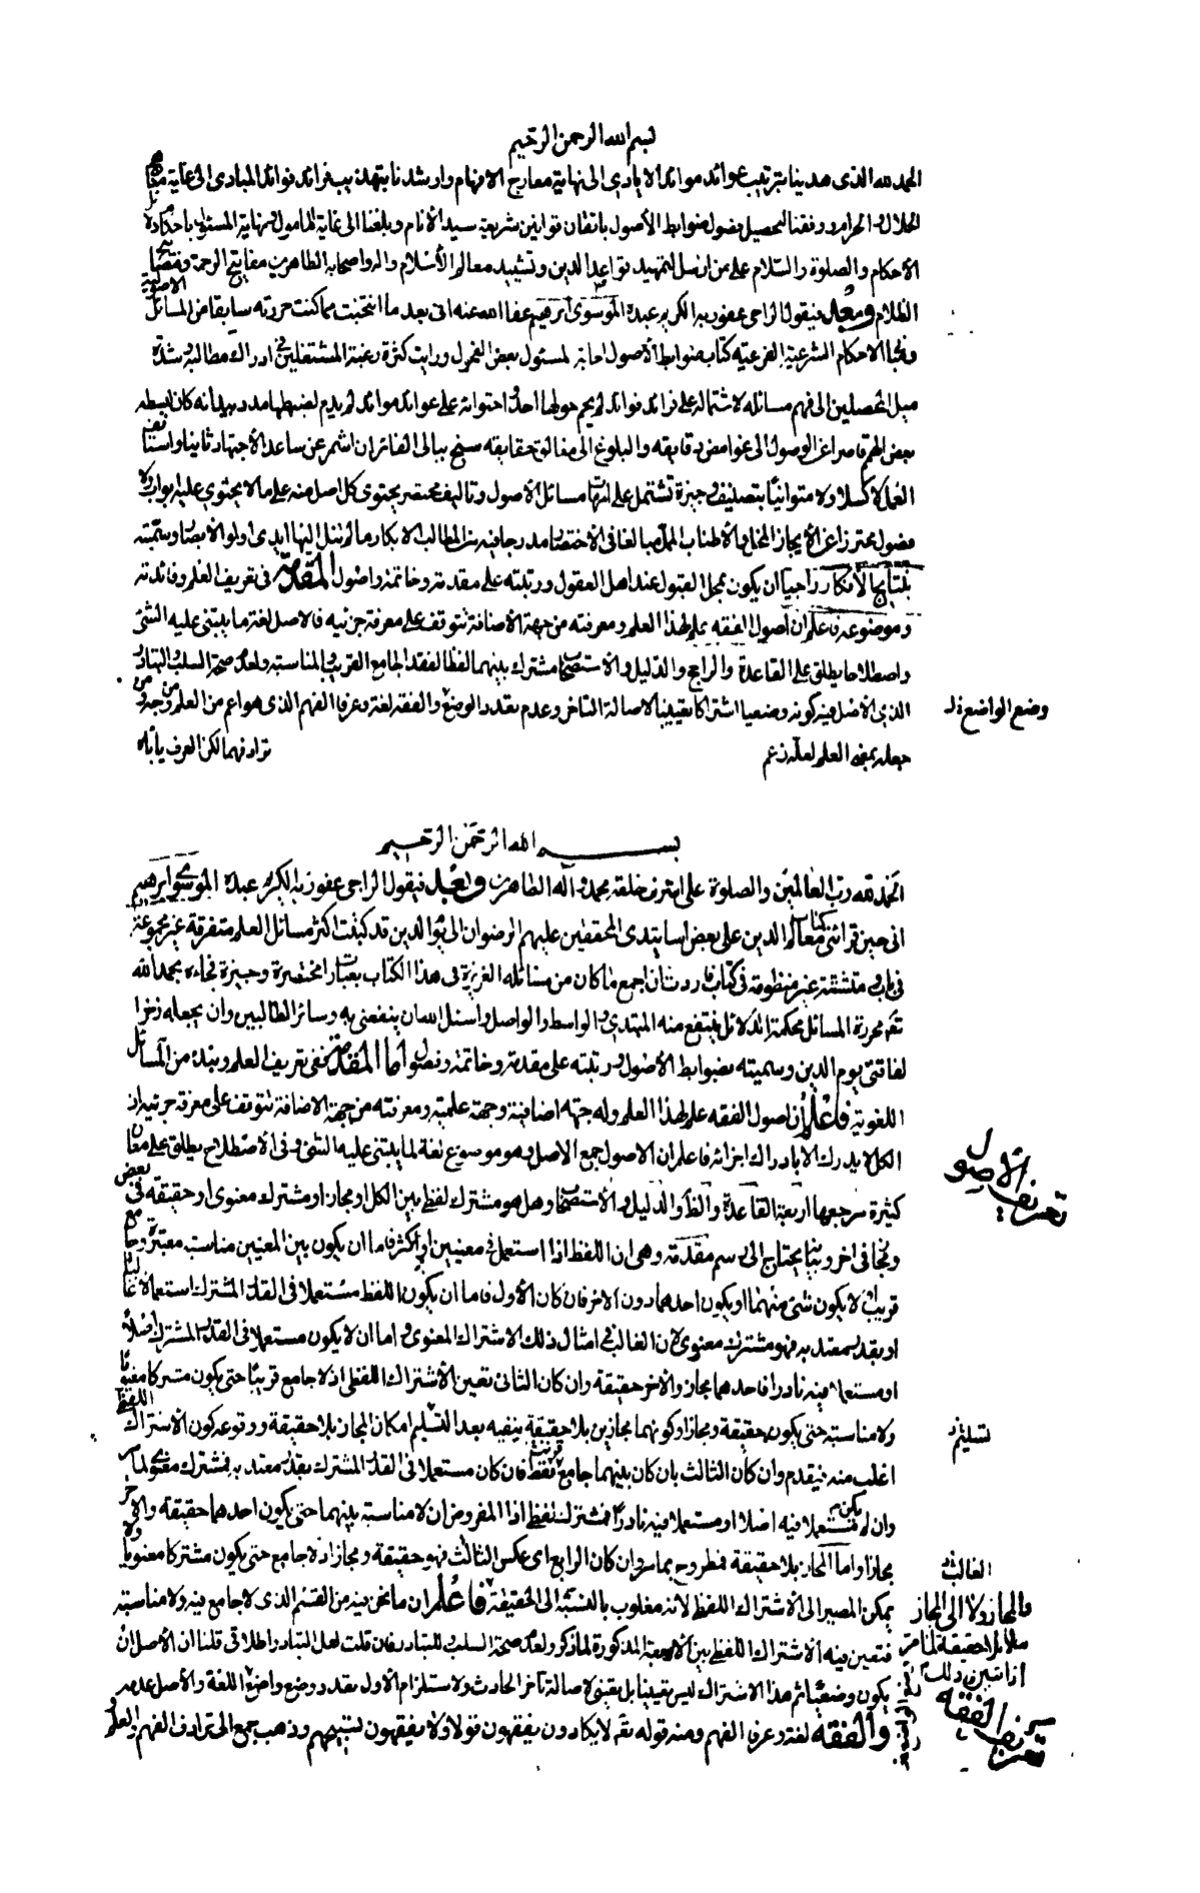 بسم الله الرحمن الرحيم
الحمد لله الذى هدينا بترتيب عوائد موائد الايادى الى نهاية معارج الافهام وارشدنا بتهذيب فرائد فوائد المبادى الى غاية
الحلال والحرام ووفقنا لتحصيل فصول ضوابط الأصول باتقان قوانين شريعة سيد الأنام وبلغنا الى غاية المامول ونهاية المسئول باحكام
الأحكام والصلوة والسلام على من ارسل لتمهيد قواعد الدين وتشييد معالم الأسلام واله واصحابه الطاهرين مفاتيح الرحمة
الظلام وبعد فيقول الراجى عفو ربه الكريم عبده الموسوى ابرهيم عفا الله عنه انى بعد ما انتخبت مما كنت حررته سابقا من المسائل الاصولية
الاحكام الشرعية الفرعية كتاب ضوابط الأصول اجابة لمسئول بعض الفحول ورايت كثرة رغبة المشتغلين فى ادراك مطالبه وشدة
ميل المحصلين الى فهم مسائله لاشتماله على فرائد فوائد لم يحم حولها احد واحتوائه على عوائد موائد لم يدم لضبطها مدد بيد انه كان لبسطه
بعض الهمم قاصرا عن الوصول الى غوامض دقايقه والبلوغ الى مغالق حقايقه سنح ببالى الفاتر ان اشمر عن ساعد الأجتهاد ثانيا
لا كسلا ولا متوانيا بتصنيف وجيزة تشتمل على امهات مسائل الأصول وتاليف مختصر يحتوى كل اصل منه على ما لا يحتوى عليه ابواب ولا
فصول محترزا عن الأيجاز المخل والأطناب الممل مبالغا فى الأختصار مدرجا فيه من المطالب الابكار ما لم تنل اليها ايدى اولو الابصار وسميته
بنتايج الأفكار راجيا ان يكون بمحل القبول عند اهل العقول ورتبته على مقدمة وخاتمة واصول المقدمة فى تعريف العلم وفائدته
وموضوعه فاعلم ان اصول الفقه علم لهذا العلم ومعرفته من جهة الأضافة تتوقف على معرفة جزئيه فالاصل لغة ما يبتنى عليه الشئ
واصطلاحا يطلق على القاعدة والراجح والدليل والاستصحاب مشترك بينهما لفظا لفقد الجامع القريب والمناسبة ولعدم صحة السلب والتبادر
الذى الاصل فيه كونه وضعيا اشتراكا تعيينيا لاصالة التاخر وعدم تعدد الوضع والفقه لغة وعرفا الفهم الذى هو اعم من العلم من وجه
جعله بمعنى العلم لعله زعم ترادفهما لكن العرف يأباه
وضع الواضع
بسم الله الرحمن الرحيم
الحمد لله رب العالمين والصلوة على اشرف خلقه محمد وآله الطاهرين وبعد فيقول الراجى عفو ربه الكريم عبده الموسوى ابرهيم
انى حين قرائتى كتاب معالم الدين على بعض اساتيدى المحققين عليهم الرضوان الى يوم الدين قد كتبت اكثر مسائل العلم متفرقة غير مجموعة
فى باب ومتشتتة غير منظومة فى كتاب فاردت ان اجمع ما كان من مسائله الغزيرة فى هذا الكتاب بعبارة مختصرة وجيزة فجاء بحمد الله
تعم محررة المسائل محكمة الدلائل ينتفع منه المبتدى والواسط والواصل واسئل الله ان ينفعنى به وسائر الطالبين وان يجعله ذخرا
لفاقتى يوم الدين وسميته بضوابط الأصول ورتبته على مقدمة وخاتمة وفصول اما المقدمة ففى تعريف العلم ونبذة من المسائل
اللغوية فاعلم ان اصول الفقه علم لهذا العلم وله جهة اضافية وجهة علمية ومعرفته من جهة الاضافة تتوقف على معرفة جزئيه اذ
الكل لا يدرك الا بادراك اجزائه فاعلم ان الاصول جمع الاصل وهو موضوع لغة لما يبتنى عليه الشئ وفى الاصطلاح يطلق على معان
كثيرة مرجعها اربعة القاعدة والظاهر والدليل والأستصحاب وهل هو مشترك لفظى بين الكل او مجاز او مشترك معنوى او حقيقة فى بعض
ومجاز فى اخر وبيانها يحتاج الى رسم مقدمة وهى ان اللفظ اذا استعمل فى معنيين او اكثر فاما ان يكون بين المعنيين مناسبة معتبرة وجامع
قريب او لا يكون شئ منهما او يكون احدهما دون الاخر فان كان الأول فاما ان يكون اللفظ مستعملا فى القدر المشترك استعمالا غالبا
او بقدر معتد به فهو مشترك معنوى لأن الغالب فى امثال ذلك الاشتراك المعنوى واما ان لا يكون مستعملا فى القدر المشترك اصلا
او مستعملا فيه نادرا فاحدهما مجاز والأخر حقيقة وان كان الثانى تعين الأشتراك اللفظى اذ لا جامع قريبا حتى يكون مشتركا معنويا
ولا مناسبة حتى يكون حقيقة ومجازا وكونهما مجازين بلا حقيقة ينفيه بعد التسليم امكان المجاز بلا حقيقة ووقوعه كون الأشتراك اللفظى
اغلب منه فيقدم وان كان الثالث بان كان بينهما جامع قريب فقط فان كان مستعملا فى القدر المشترك بقدر معتد به فمشترك معنوى لما مر
وان لم يكن مستعملا فيه اصلا او مستعملا فيه نادرا فمشترك لفظى اذا المفروض ان لا مناسبة بينهما حتى يكون احدهما حقيقة والاخر
مجازا واما المجاز بلا حقيقة فمطروح بما مر وان كان الرابع اى عكس الثالث فهو حقيقة ومجاز اذ لا جامع حتى يكون مشتركا معنويا ولا
يمكن المصير الى الأشتراك اللفظى لانه مغلوب بالنسبة الى الحقيقة فاعلم ان ما نحن فيه من القسم الذى لا جامع فيه ولا مناسبة
فتعين فيه الأشتراك اللفظى بين الأربعة المذكورة لما ذكر ولعدم صحة السلب وللتبادر فان قلت لعل التبادر اطلاقى قلنا ان الأصل ان
يكون وضعيا ثم هذا الاشتراك ليس تعيينيا بل تعينى لاصالة تأخر الحادث ولاستلزام الأول تعدد وضع واضع اللغة والأصل عدمه
والفقه لغة وعرفا الفهم ومنه قوله تعم لا يكادون يفقهون قولا ولا يفقهون تسبيحهم وذهب جمع الى ترادف الفهم والعلم
تعريف الاصول
تسليم
الغالب
والمجاز ولا الى المجاز
بلا حقيقة لما مر
اذا تبين ذلك
تعريف الفقه